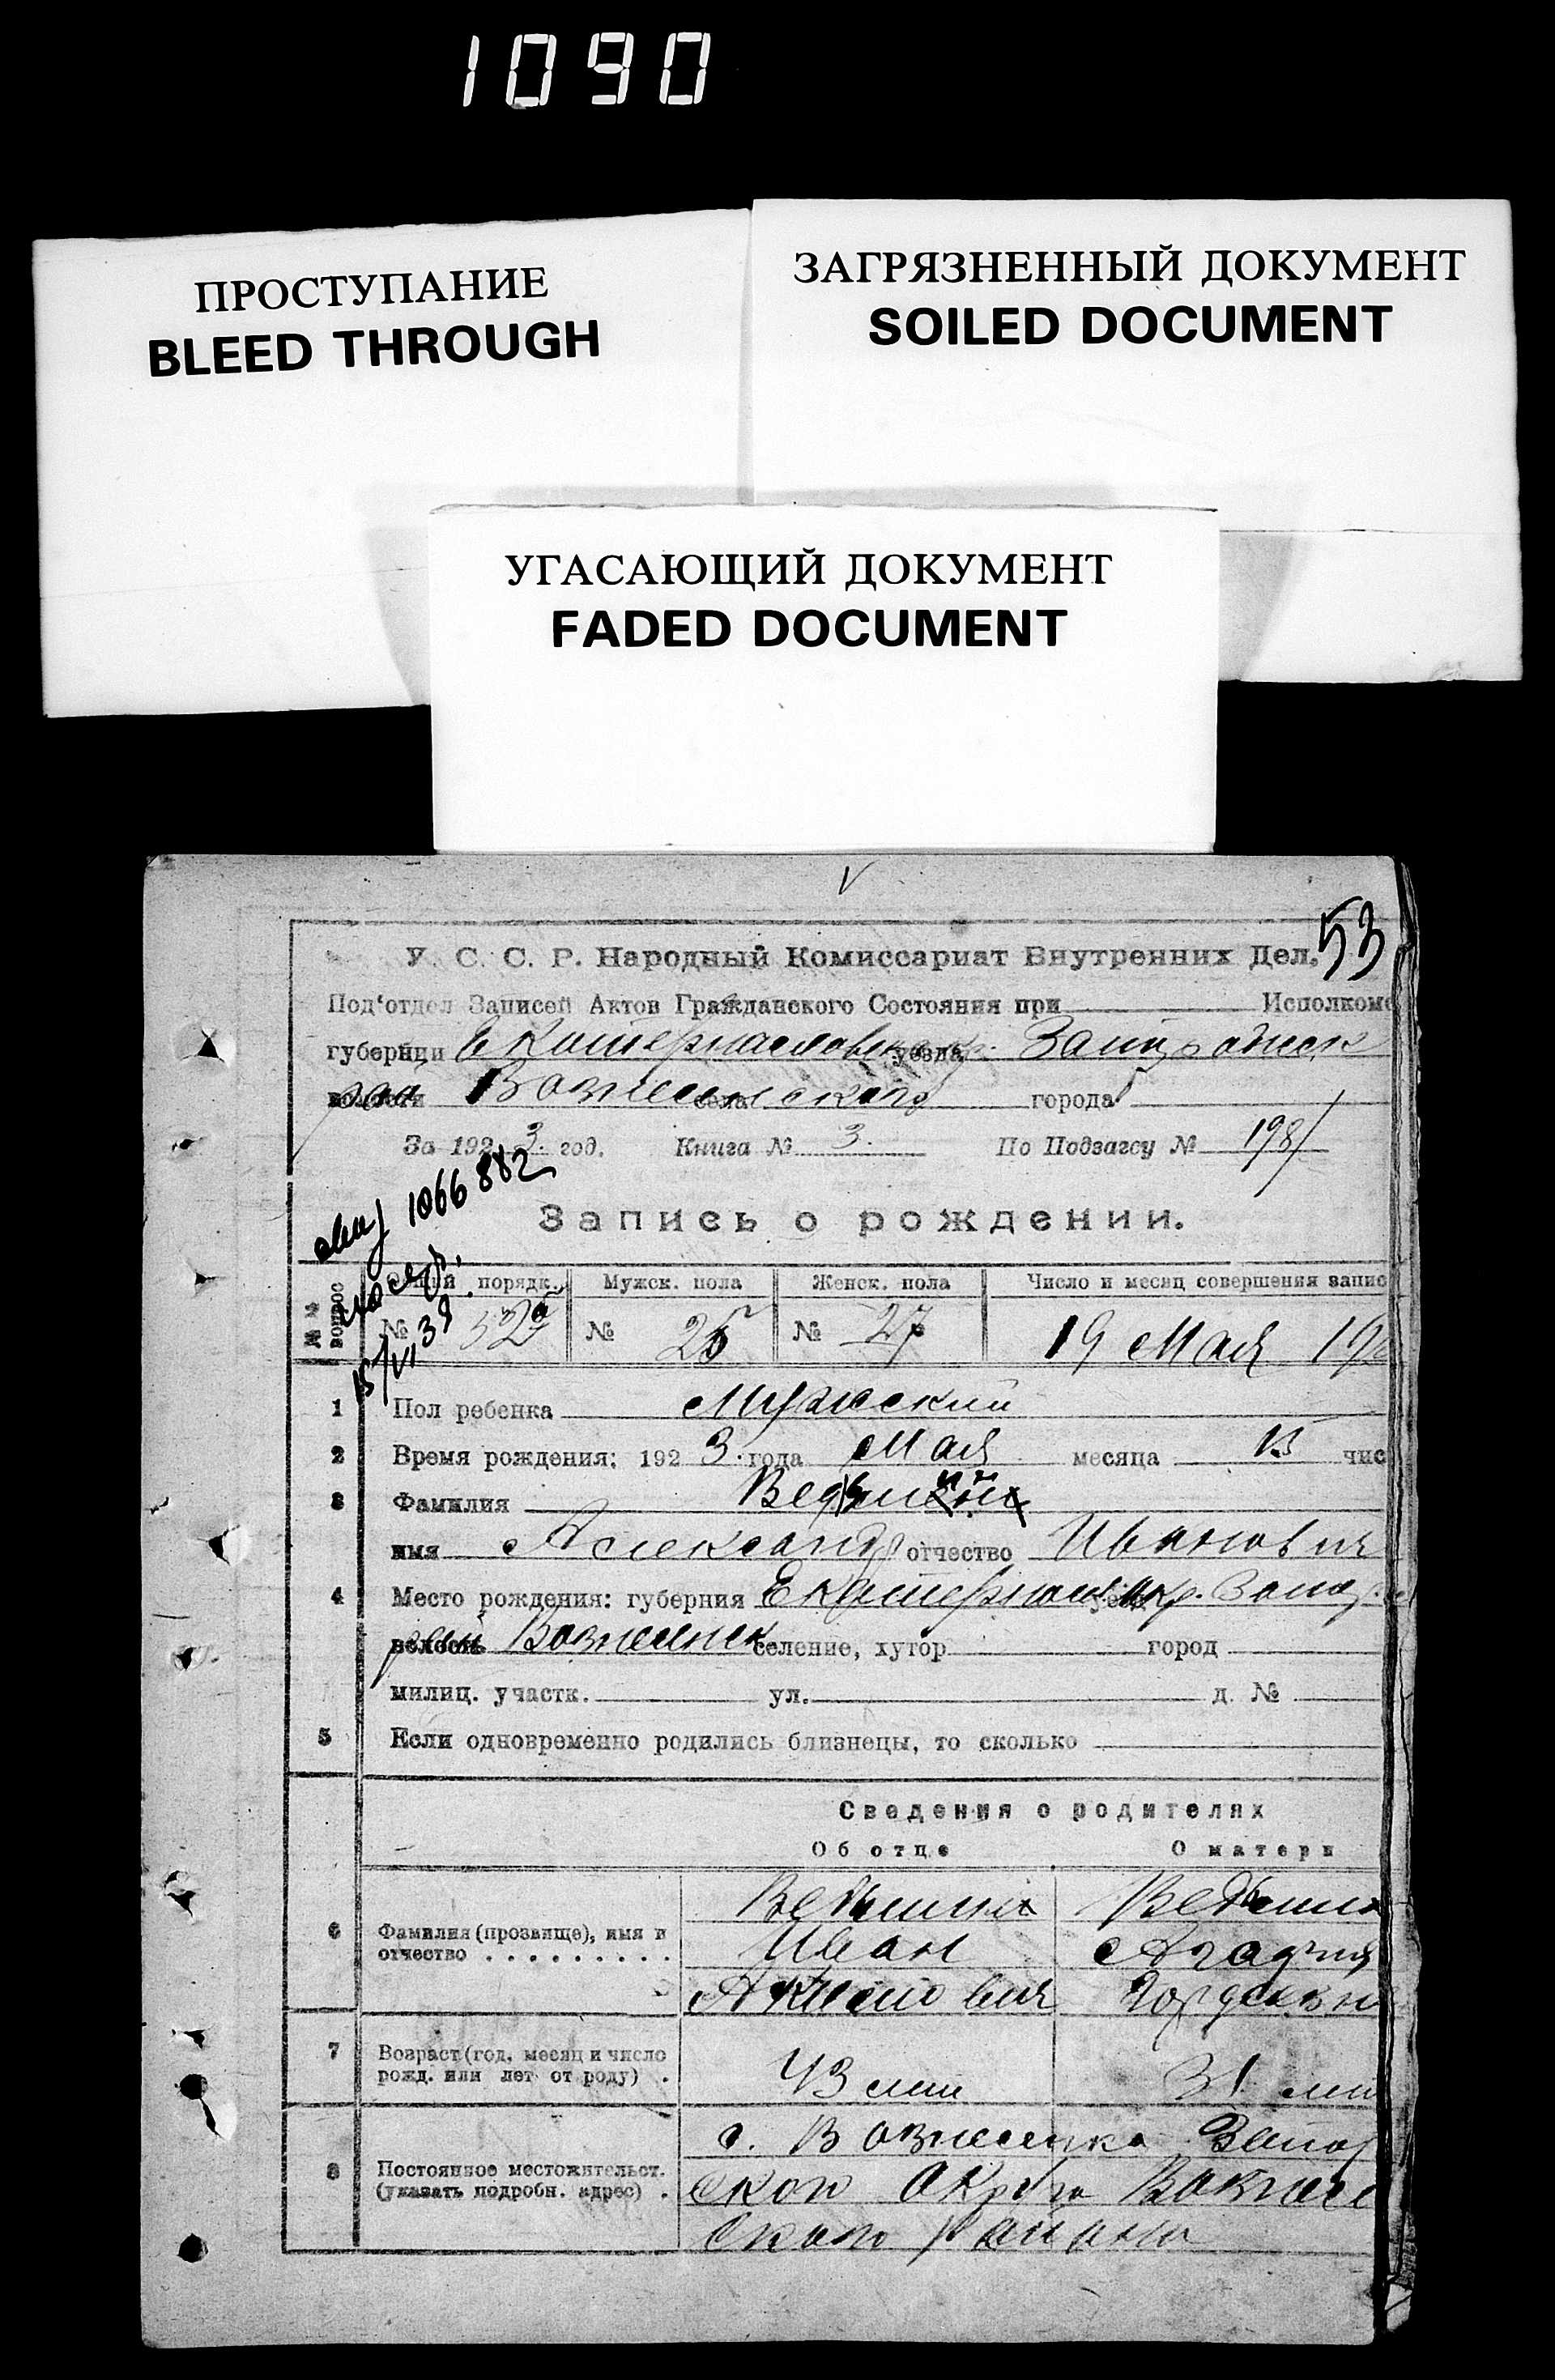 1090
ПРОСТУПАНИЕ
BLEED THROUGH
ЗАГРЯЗНЕННЫЙ ДОКУМЕНТ
SOILED DOCUMENT
УГАСАЮЩИЙ ДОКУМЕНТ
FADED DOCUMENT
53
У. С. С. Р. Народный Комиссариат Внутренних Дел.
Под'отдел Записей Актов Гражданского Состояния при Исполкоме
губернии Екатеринославск уезда Запорожск
волости Вознесенского села города
За 1923. год. Книга № 3. По Подзагсу № 198
1066882
Запись о рождении.
№№ вопрос Общий порядк. Мужск. пола Женск. пола Число и месяц совершения запис
№ 52 № 25 № 27 19 Мая 19
15/VI 39
1 Пол ребенка Мужеский
2 Время рождения: 1923. года Мая месяца 13 чис
3 Фамилия Ведьмин
имя Александр отчество Иванович
4 Место рождения: губерния Екатеринос. уезд окр. Запор.
волость район Вознесенск селение, хутор город
милиц. участк. ул. д. №
5 Если одновременно родились близнецы, то сколько
Сведения о родителях
Об отце О матери
6 Фамилия (прозвище), имя и отчество
Ведьмин Ведьмин
Иван
Гордеевн
7 Возраст (год, месяц и число рожд. или лет от роду) 43 лет 31 ле
8 Постоянное местожительст. (указать подробн. адрес)
с. Вознесенка Запор
ского округа Вознесе
ского района